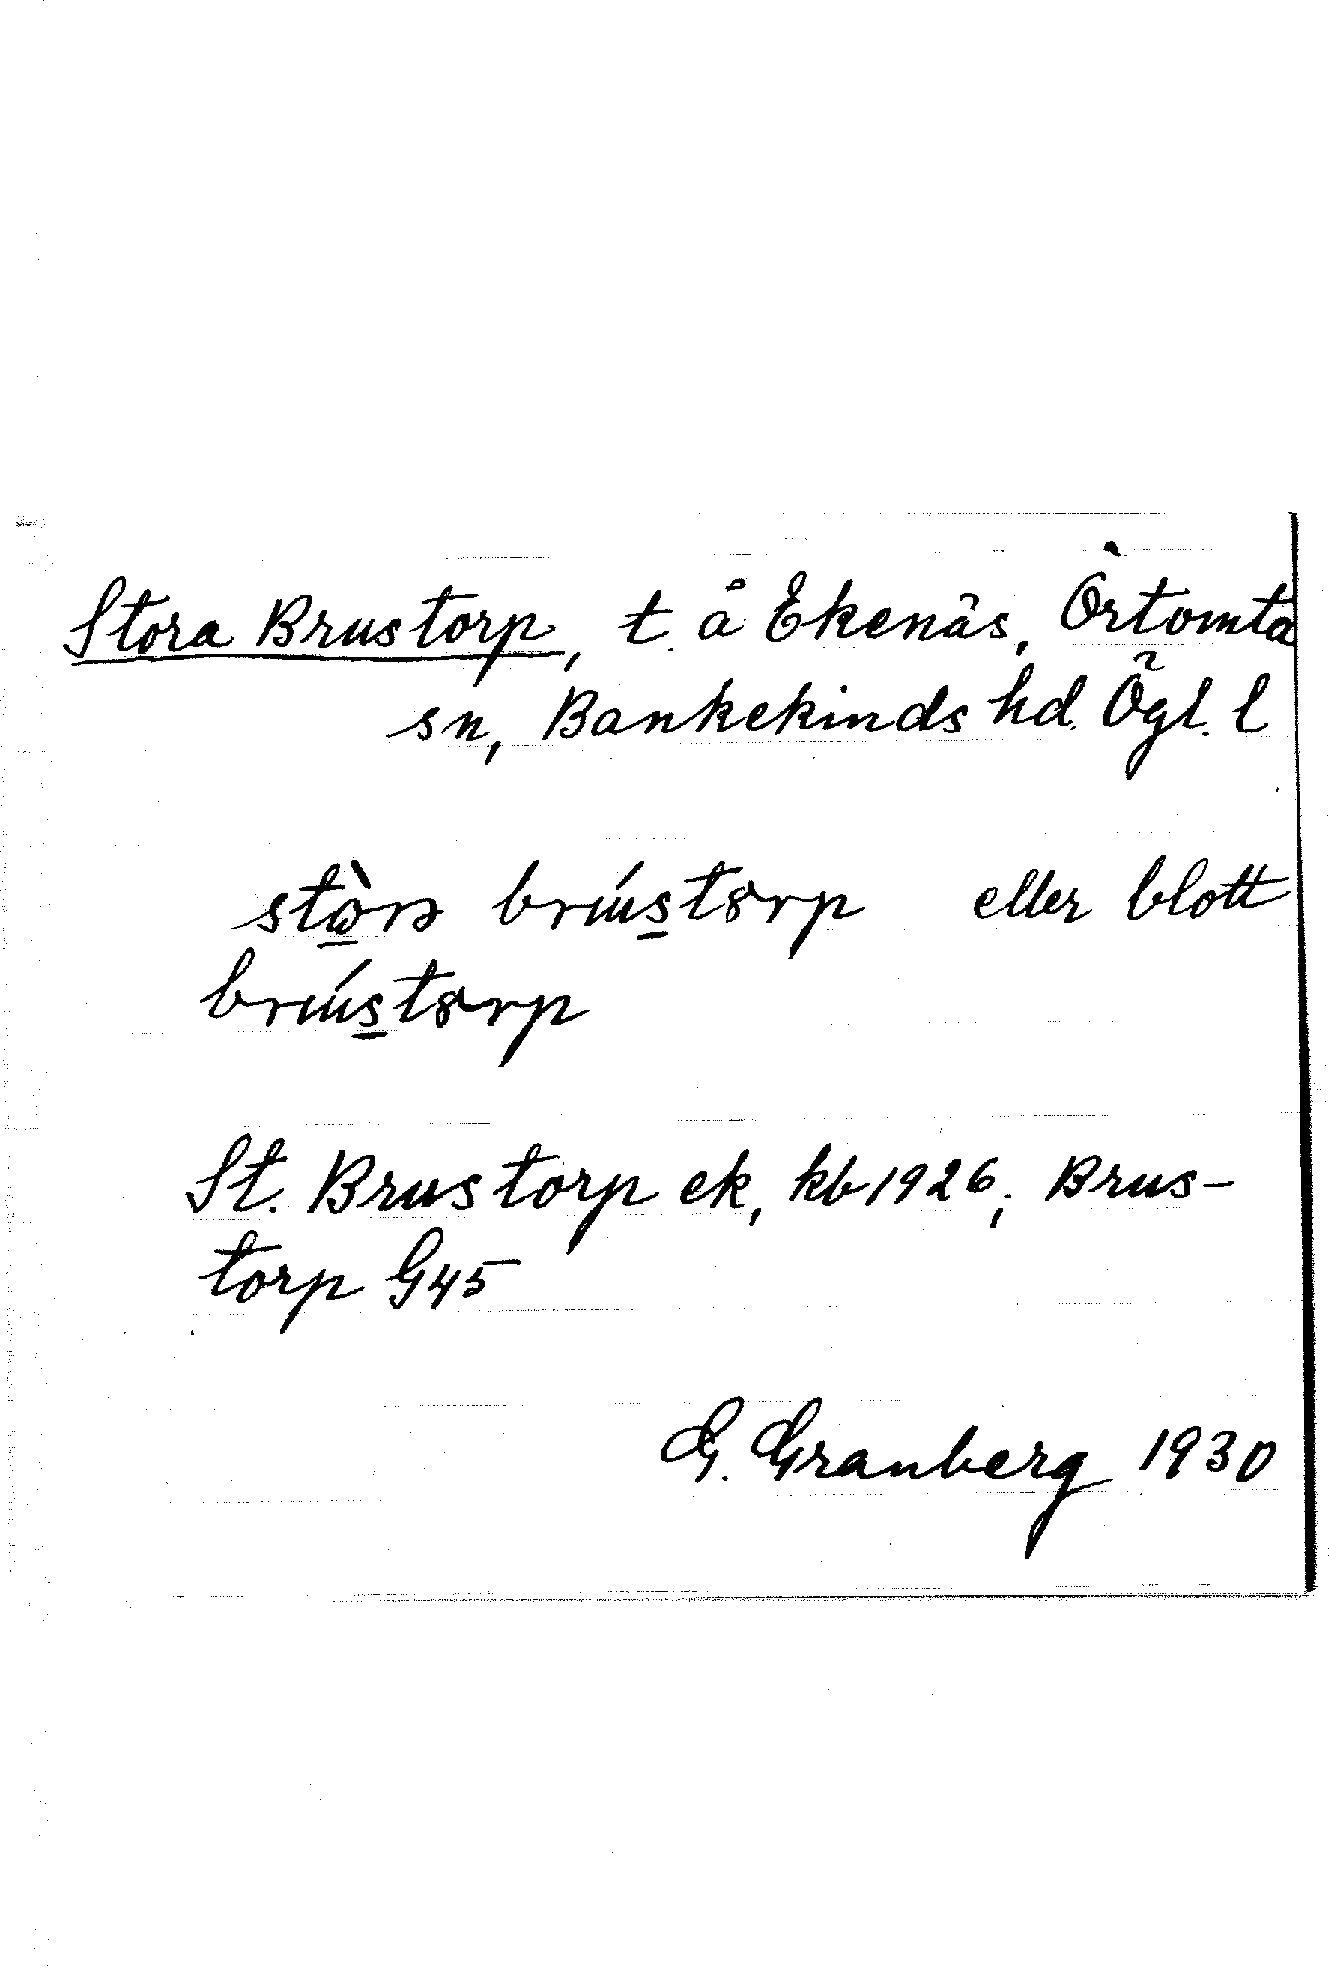 Stora Brustorp, t. å Ekenäs, Örtomta
sn, Bankekinds hd. Ögl. l
stὼrɔ brústɞrp eller blott
brústɞrp
St. Brustorp ek, kb 1926; Brus-
torp G45
G. Granberg 1930